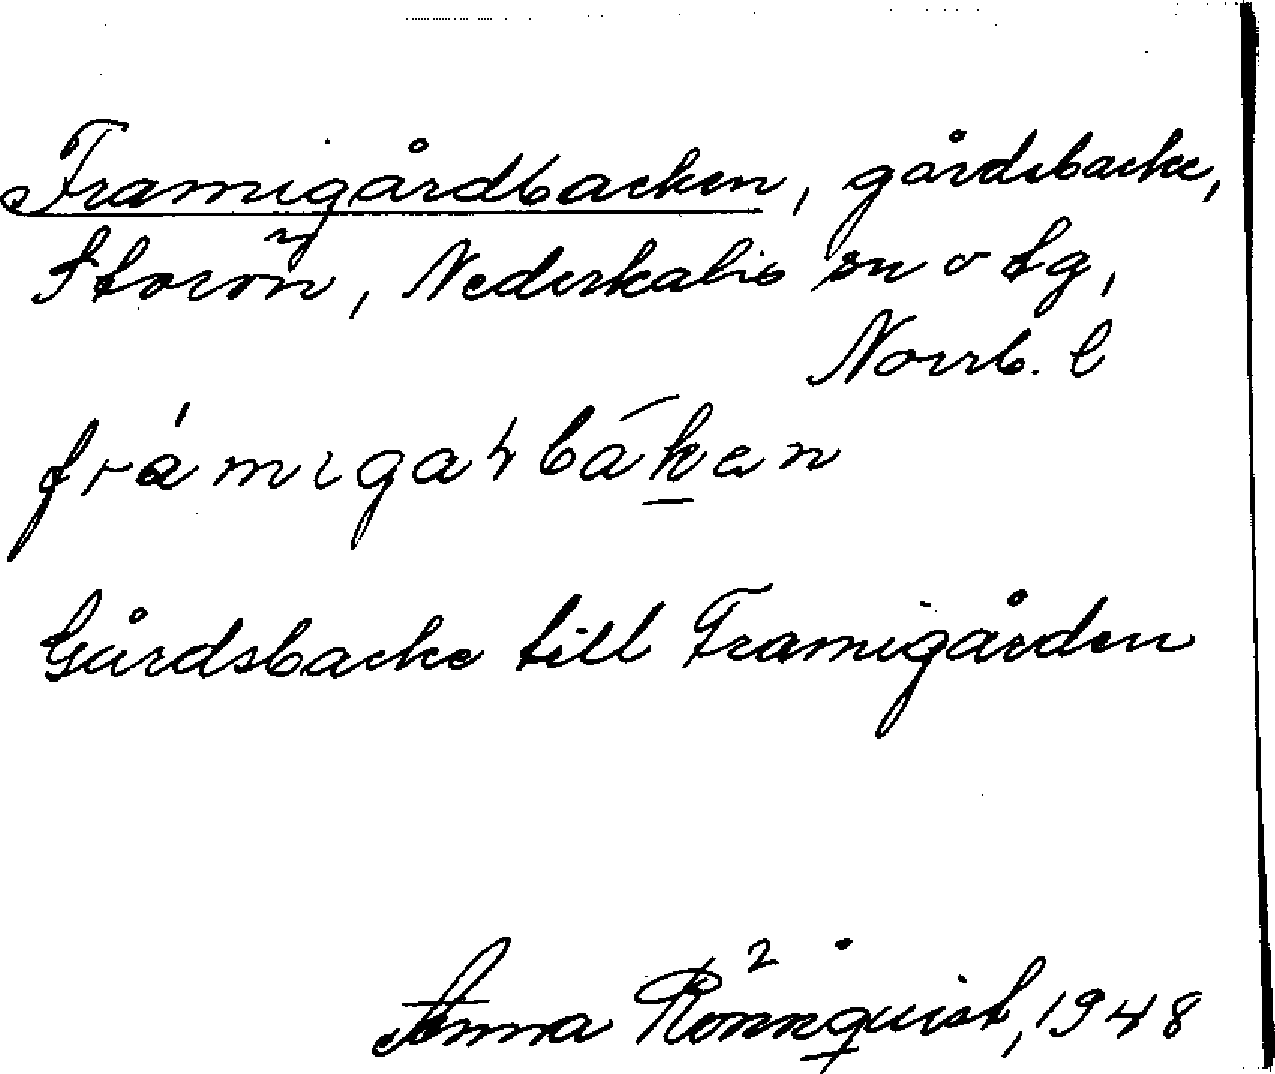 Framigårdbacken, gårdsbacke,
Storön, Nederkalix sn o tg,
Norrb. l
frámigaṭbák̲en
Gårdsbacke till Framigården
Anna Rönnquist, 1948